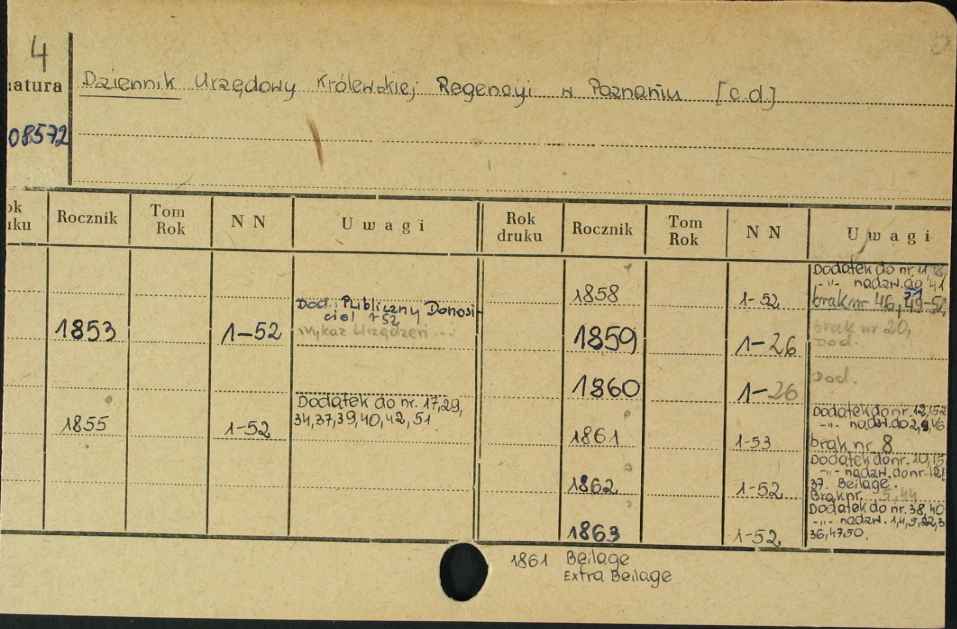 4
natura Dziennik Urzędowy Królewskiej Regencyi w Poznaniu [c.d.]
08572
ok
uku Rocznik Tom
Rok N N Uwagi Rok
druku Rocznik Tom
Rok N N Uwagi
1853 1-52 Dod. Publiczny Donosi-
ciel 1-52
Wykaz Urządzeń
1855 1-52 Dodatek do nr. 17,29,
34,37,39,40,42,51
1858 1-52 Dodatek do nr.
-"- nadzw. do 41
brak nr 46, 49-52
1859 1-26 brak nr 20,
Dod.
1860 1-26 Dod.
1861 1-53 Dodatek do nr. 12,
-"- nadzw. do
brak nr 8
1862 1-52 Dodatek do nr.
-"- nadzw. do nr.
37. Beilage.
Brak nr.
1863 1-52 Dodatek do nr. 38,40
-"- nadzw.
36,47,50.
1861 Beilage
Extra Beilage